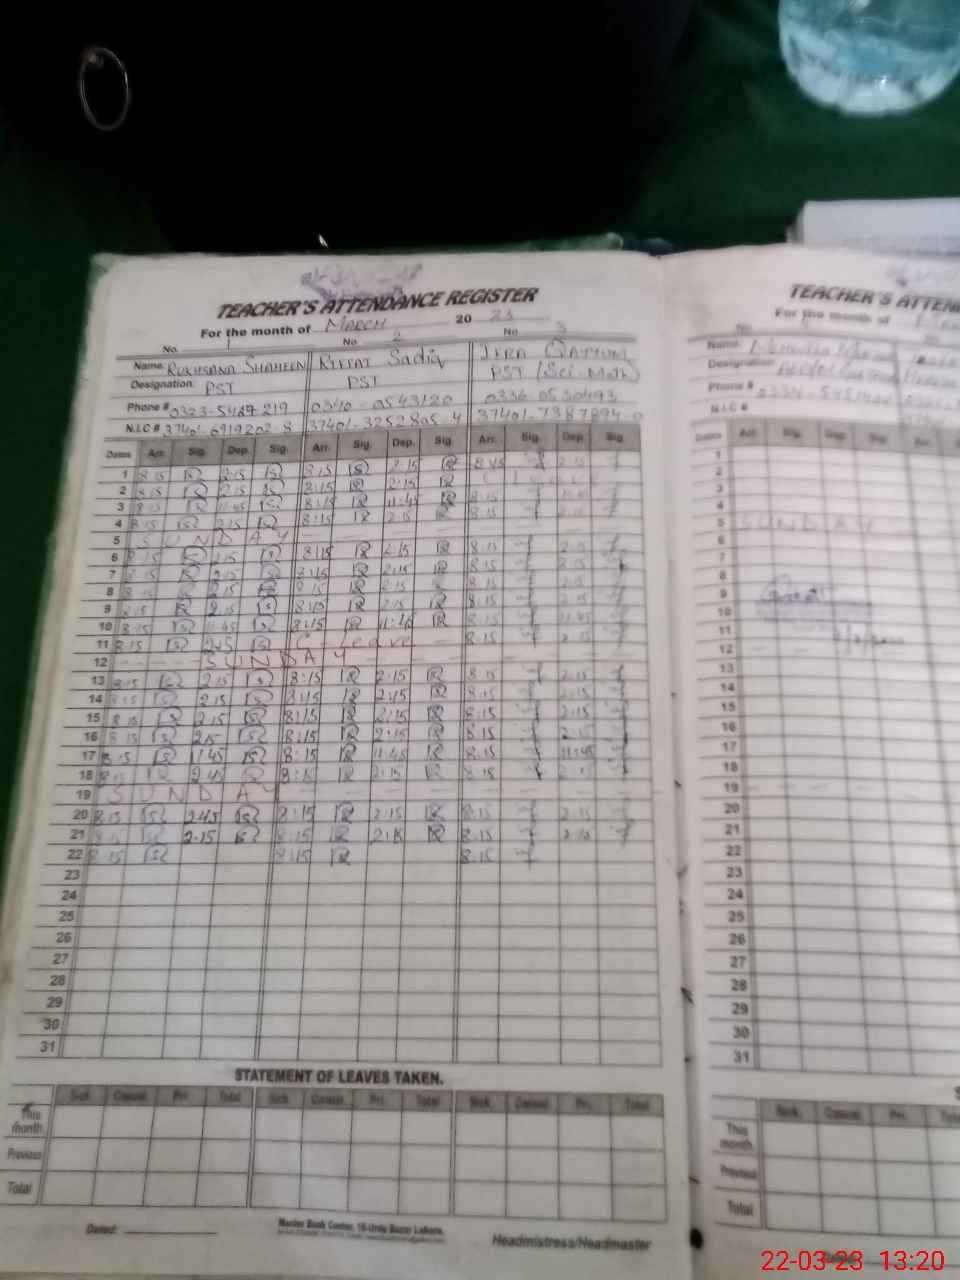 TEACHER'S ATTENDANCE REGISTER
For the month of MARCH 2023
No. 1 No. 2 No. 3
Name: RUKHSANA SHAHEEN RIFFAT Sadiq IFRA QAYYUM
Designation: PST PST PST (Sci-Math)
Phone # 0340-0543120 0336-0530493
N.I.C # 37401-6919202-8 37401-3252805-4 37401-7387894-0
Dates Arr. Sig. Dep. Sig. Arr. Sig. Dep. Sig Arr. Sig. Dep. Sig.
1 8:15 2:15 8:15 2:15 8:45 2:15
2 8:15 2:15 8:15 2:15 C Leave
3 8:15 11:45 8:15 11:45 8:15 11:45
4 8:15 2:15 8:15 2:15 8:15 2:15
5 SUNDAY
6 8:15 2:15 8:15 2:15 8:15 2:15
7 8:15 2:15 8:15 2:15 8:15 2:15
8 8:15 2:15 8:15 2:15 8:15 2:15
9 8:15 2:15 8:15 2:15 8:15 2:15
10 8:15 11:45 8:15 11:45 8:15 11:45
11 8:15 2:45 C-Leave 8:15 2:15
12 SUNDAY
13 8:15 2:15 8:15 2:15 8:15 2:15
14 8:15 2:15 8:15 2:45 8:15 2:15
15 8:15 2:15 8:15 2:15 8:15 2:15
16 8:15 2:15 8:15 2:15 8:15 2:15
17 8:15 11:45 8:15 11:45 8:15 11:45
18 8:15 2:45 8:15 2:15 8:15 2:15
19 SUNDAY
20 8:15 2:45 8:15 2:15 8:15 2:15
21 8:15 2:15 8:15 2:15 8:15 2:15
22 8:15 8:15 8:15
23
24
25
26
27
28
29
30
31
STATEMENT OF LEAVES TAKEN.
Sick Casual. Pri. Total Sick. Casual. Pri. Total Sick. Casual. Pri. Total
This month.
Previous
Total
Dated:
Master Book Center, 18-Urdu Bazar Lahore.
Headmistress/Headmaster
TEACHER'S ATTEN
For the month of
No.
Name:
Designation:
Phone #
N.I.C #
Dates Arr. Sig. Dep. Sig. Arr.
1
2
3
4
5 SUNDAY
6
7
8
9
10
11
12
13
14
15
16
17
18
19
20
21
22
23
24
25
26
27
28
29
30
31
Sick. Casual. Pri. Total
This month.
Previous
Total
22-03-23 13:20